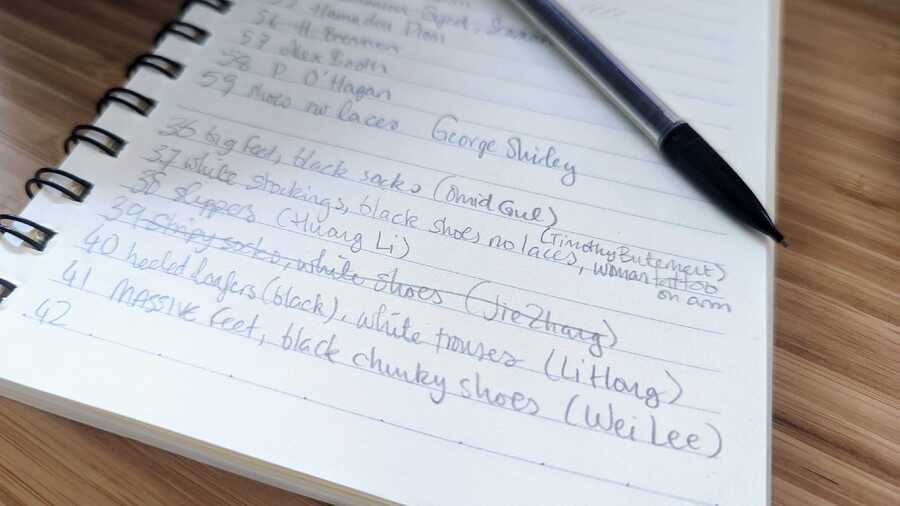 56 H. Brennan
57 Alex Booth
58 P. O'Hagan
59 shoes no laces George Shirley
36 big feet, black socks (Omid Gul)
37 white stockings, black shoes no laces, woman tattoo on arm (Timothy Butement)
38 slippers (Huang Li)
39 stripy socks, white shoes (Jie Zhang)
40 heeled loafers (black), white trouses (Li Hong)
41 MASSIVE feet, black chunky shoes (Wei Lee)
42